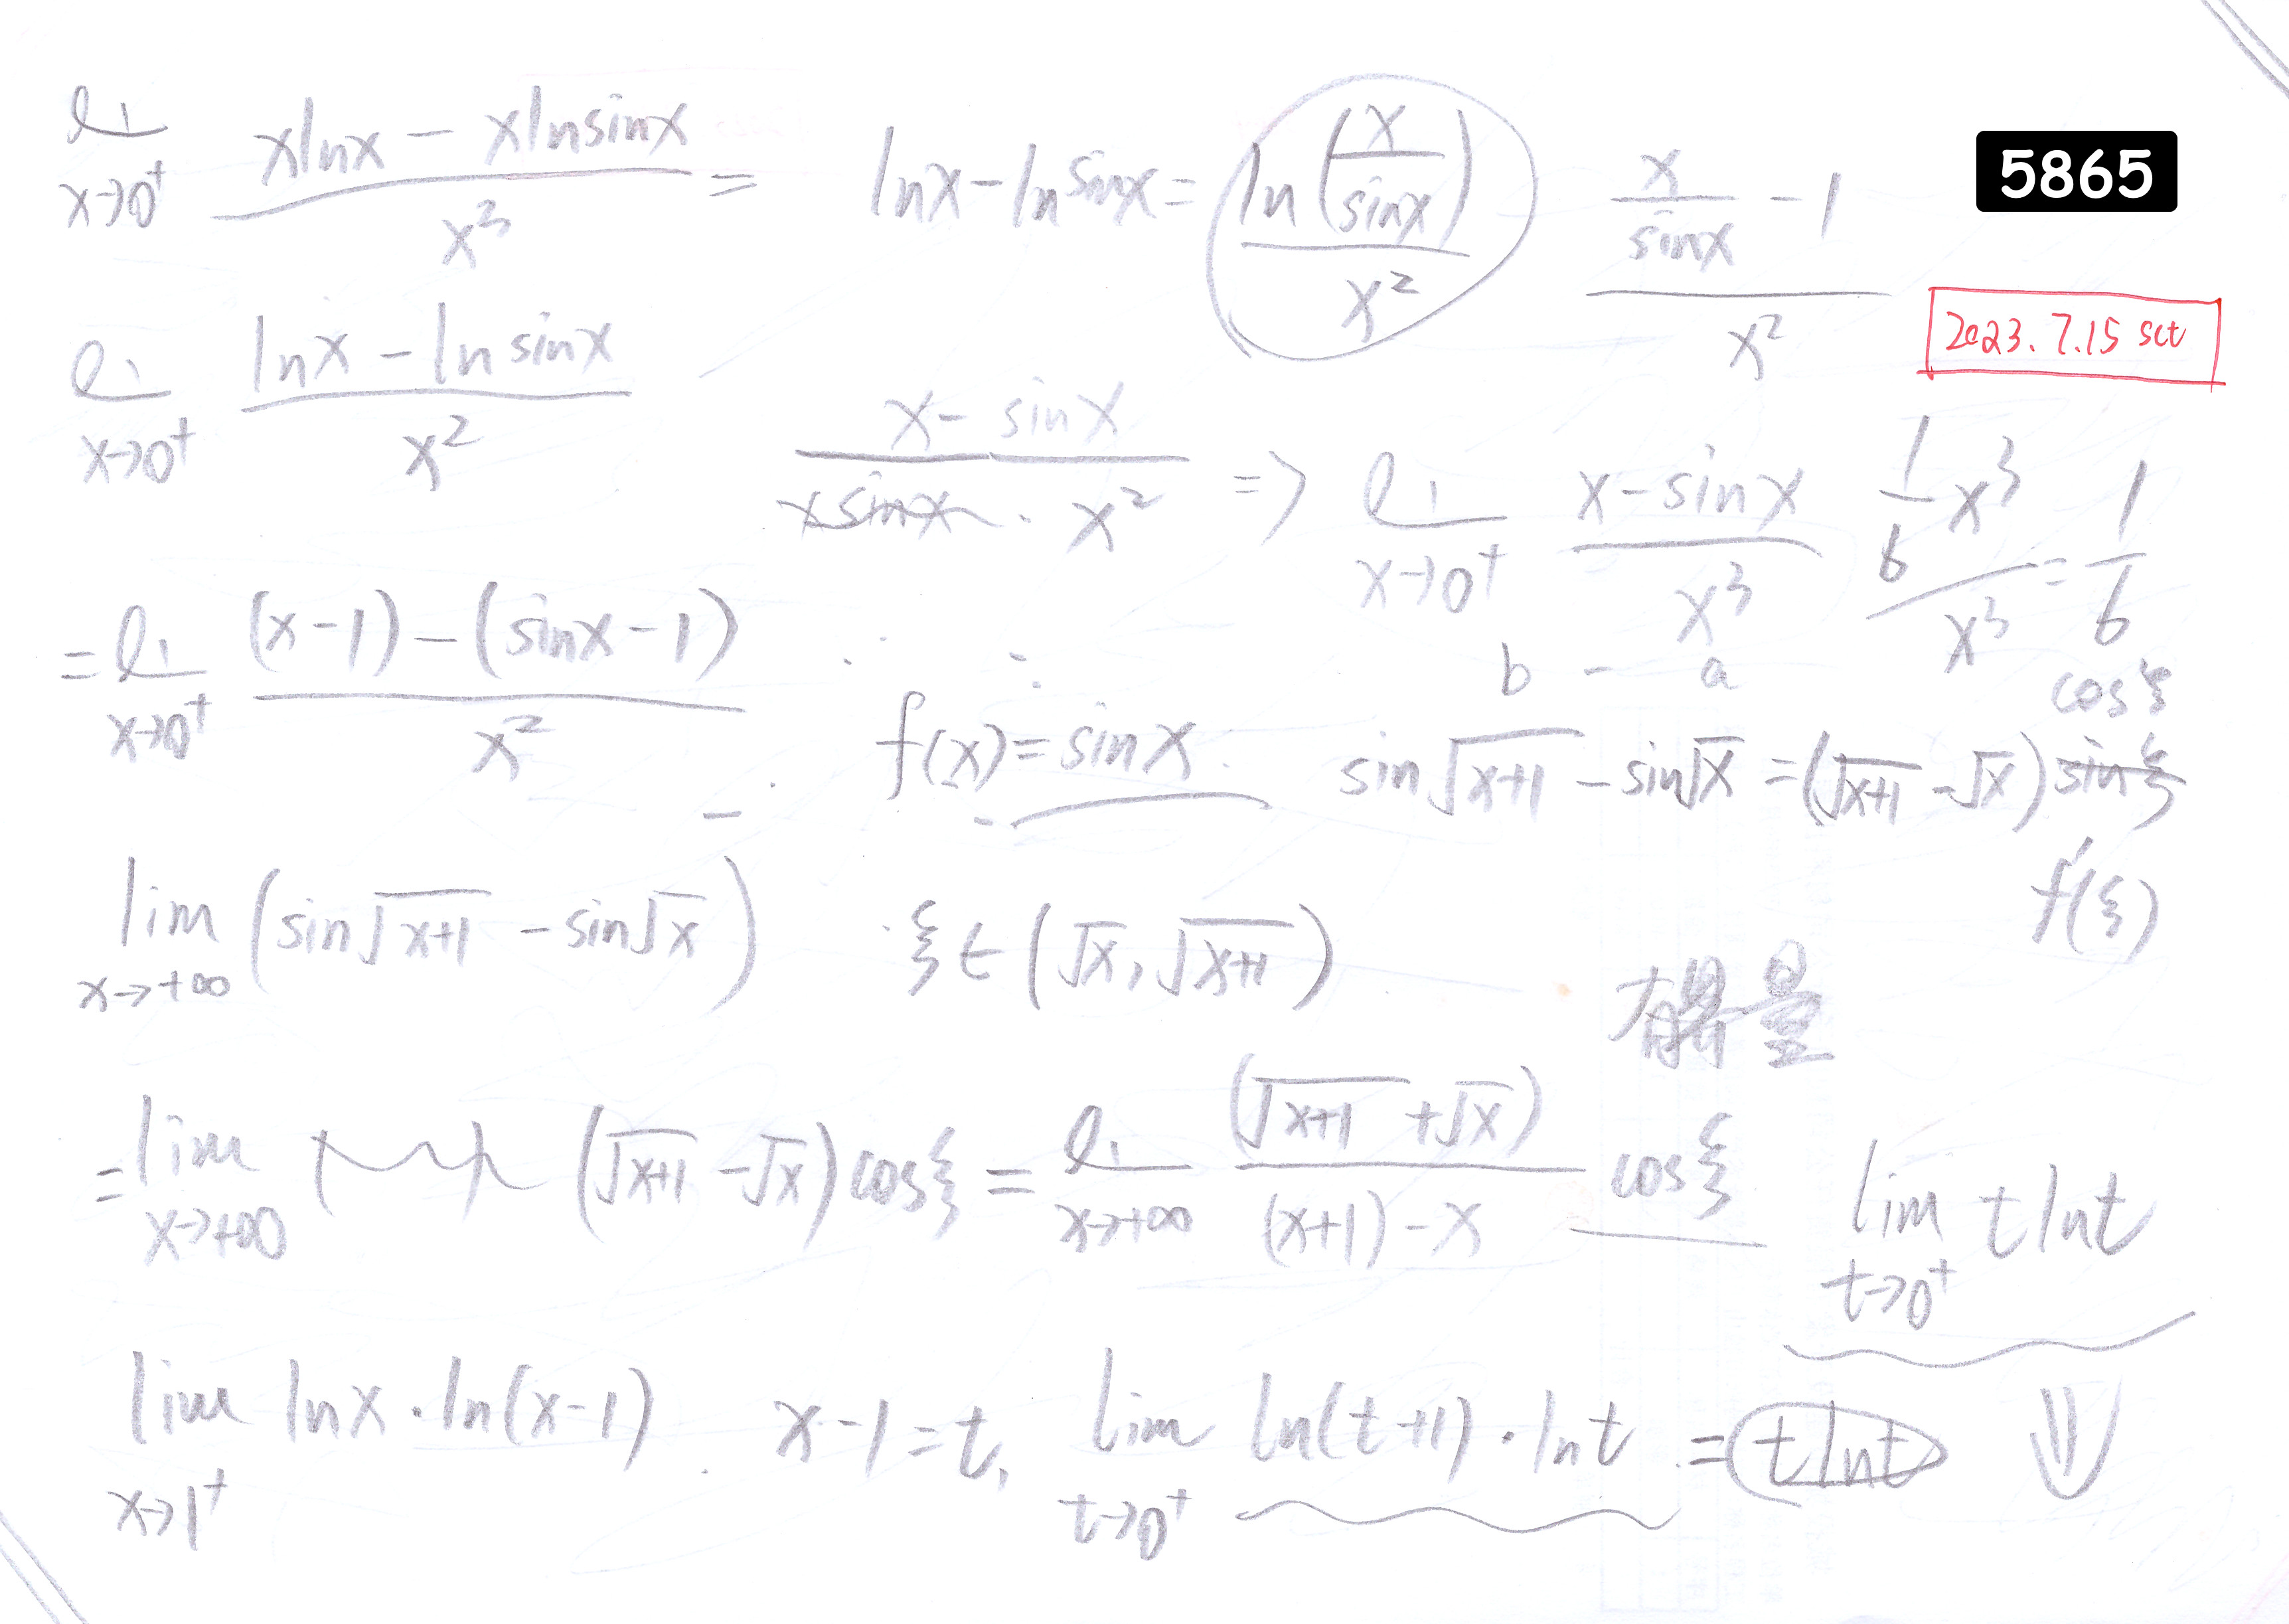 lim x→0⁺ (xlnx − xlnsinx)/x³ = lnx − lnsinx = ln(x/sinx)/x² (x/sinx − 1)/x²
5865
2023. 7.15 sat
lim x→0⁺ (lnx − lnsinx)/x²
(x − sinx)/(xsinx · x²) => lim x→0⁺ (x − sinx)/x³ (1/6 x³)/x³ = 1/6
= lim x→0⁺ ((x−1) − (sinx−1))/x²
b − a
cosξ
f(x) = sinx sin√(x+1) − sin√x = (√(x+1) − √x) sinξ
f'(ξ)
lim x→+∞ (sin√(x+1) − sin√x) ξ∈(√x, √(x+1))
有界量
= lim x→+∞ (√(x+1) − √x) cosξ = lim x→+∞ (√(x+1) + √x)/((x+1) − x) cosξ
lim t→0⁺ t lnt
lim x→1⁺ lnx · ln(x−1). x−1=t, lim t→0⁺ ln(t+1) · lnt = t lnt